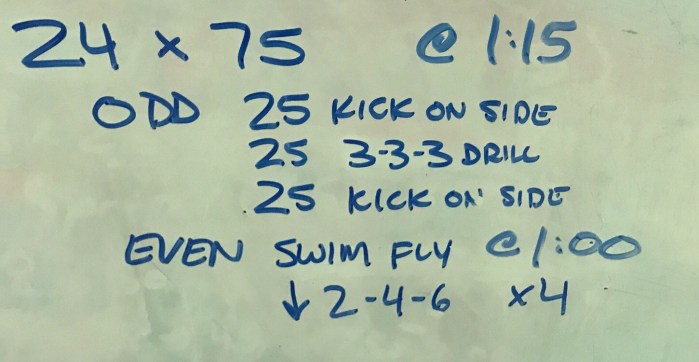 24 x 75 @ 1:15
ODD 25 KICK ON SIDE
25 3-3-3 DRILL
25 KICK ON SIDE
EVEN SWIM FLY @ 1:00
↓ 2-4-6 x4